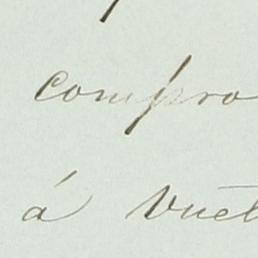 compro
á vuel